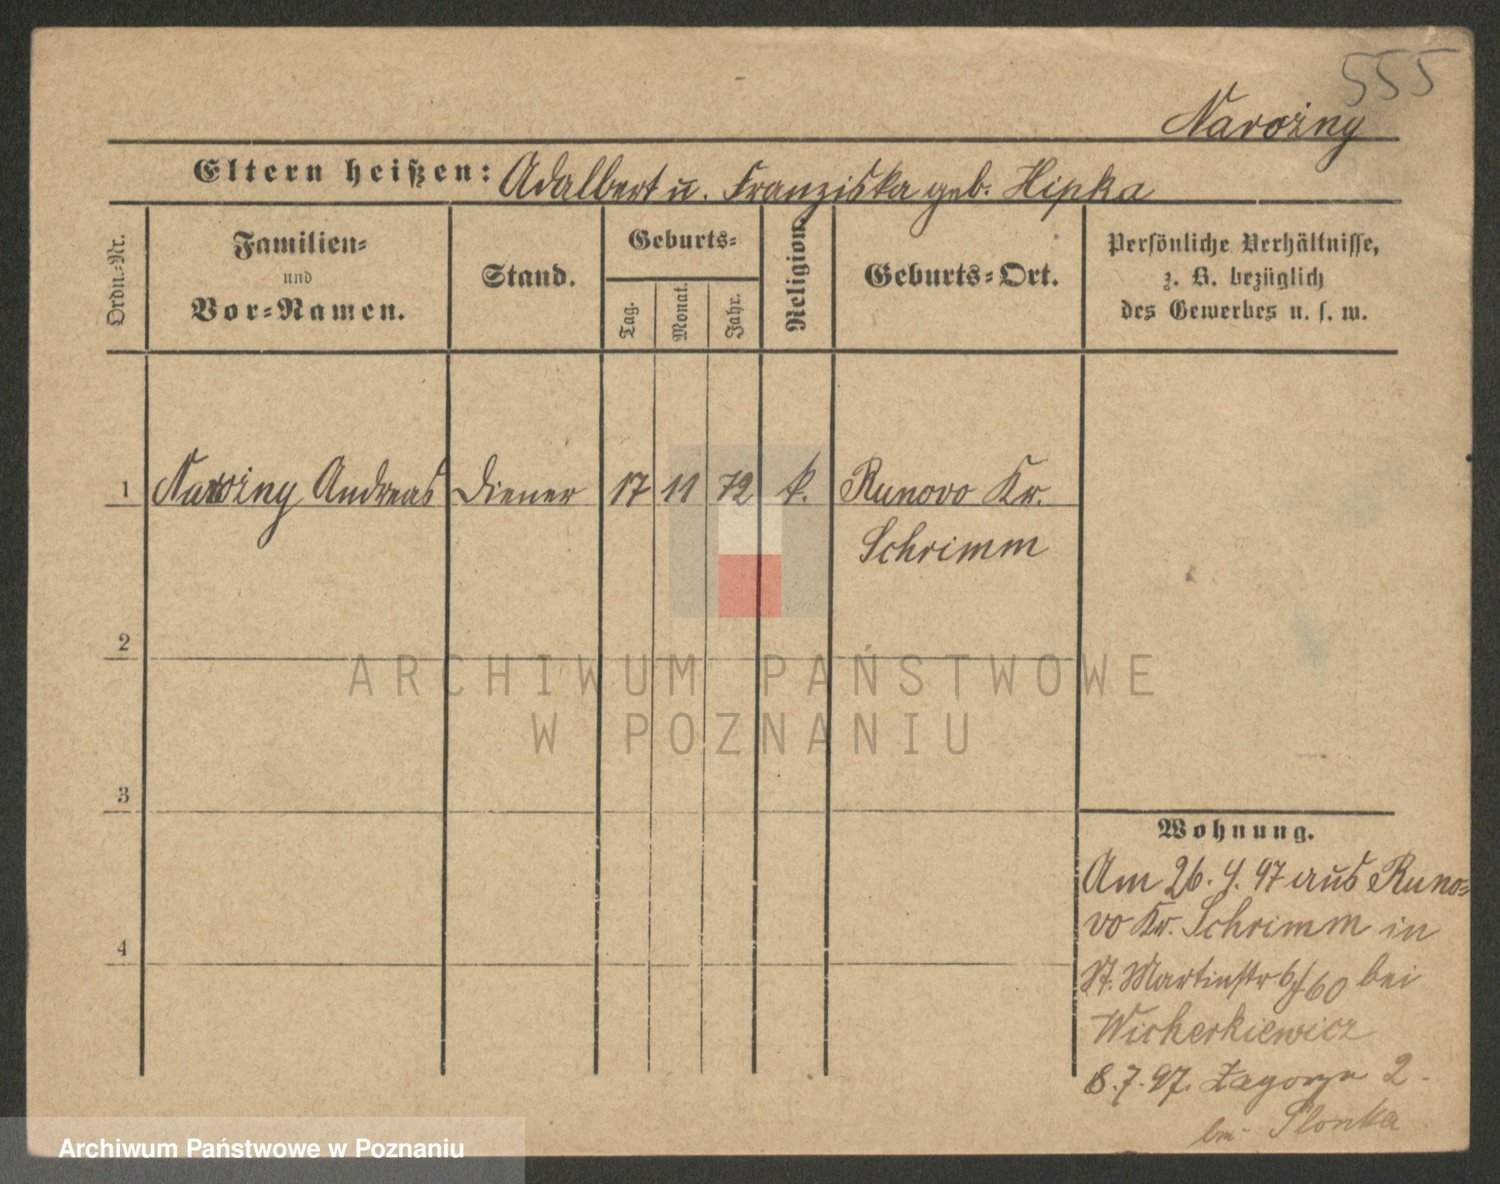 555
Narożny
Eltern heißen: Adalbert u. Franziska geb. Hipka
Ordn.-Nr.
Familien-
und
Vor-Namen.
Stand.
Geburts-
Tag.
Monat.
Jahr.
Religion.
Geburts-Ort.
Persönliche Verhältnisse,
z. B. bezüglich
des Gewerbes u. s. w.
1 Narożny Andreas Diener 17 11 72 k. Runovo Kr.
Schrimm
2
3
4
Wohnung.
Am 26. 4. 97 aus Runo-
vo Kr. Schrimm in
St. Martinstr 60 bei
Wicherkiewicz
8. 7. 97. Zagorze 2.
bei Slonka
ARCHIWUM PAŃSTWOWE
W POZNANIU
Archiwum Państwowe w Poznaniu